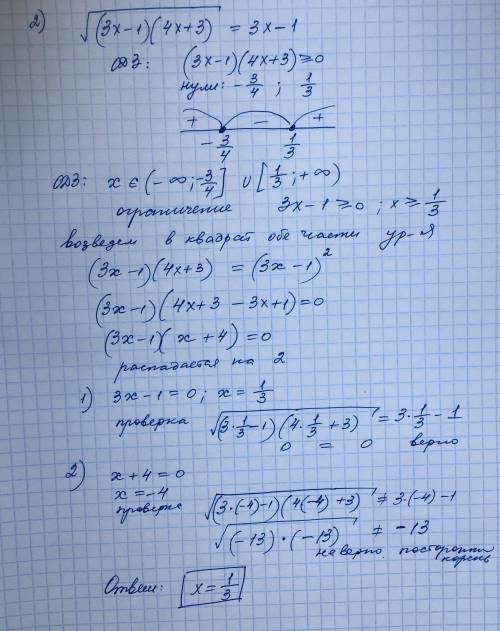 2) √((3x-1)(4x+3)) = 3x-1
ОДЗ: (3x-1)(4x+3)≥0
нули: -3/4 ; 1/3
+ - +
-3/4 1/3
ОДЗ: x ∈ (-∞; -3/4] ∪ [1/3; +∞)
ограничение 3x-1≥0 ; x≥1/3
возведем в квадрат обе части ур-я
(3x-1)(4x+3) = (3x-1)²
(3x-1)(4x+3-3x+1)=0
(3x-1)(x+4)=0
распадается на 2
1) 3x-1=0; x=1/3
проверка √((3·1/3-1)(4·1/3+3)) = 3·1/3-1
0 = 0 верно
2) x+4=0
x=-4
проверка √((3·(-4)-1)(4(-4)+3)) ≠ 3·(-4)-1
√((-13)·(-13)) ≠ -13
неверно. посторонний
корень
Ответ: x=1/3